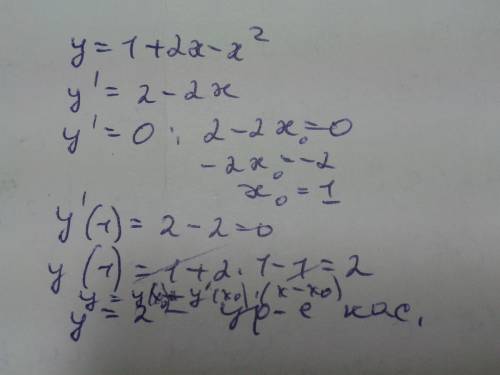 y = 1 + 2x - x²
y' = 2 - 2x
y' = 0 : 2 - 2x₀ = 0
- 2x₀ = -2
x₀ = 1
y'(1) = 2 - 2 = 0
y(1) = 1 + 2 · 1 - 1 = 2
y = y(x₀) + y'(x₀) · (x - x₀)
y = 2 - ур-е кас.